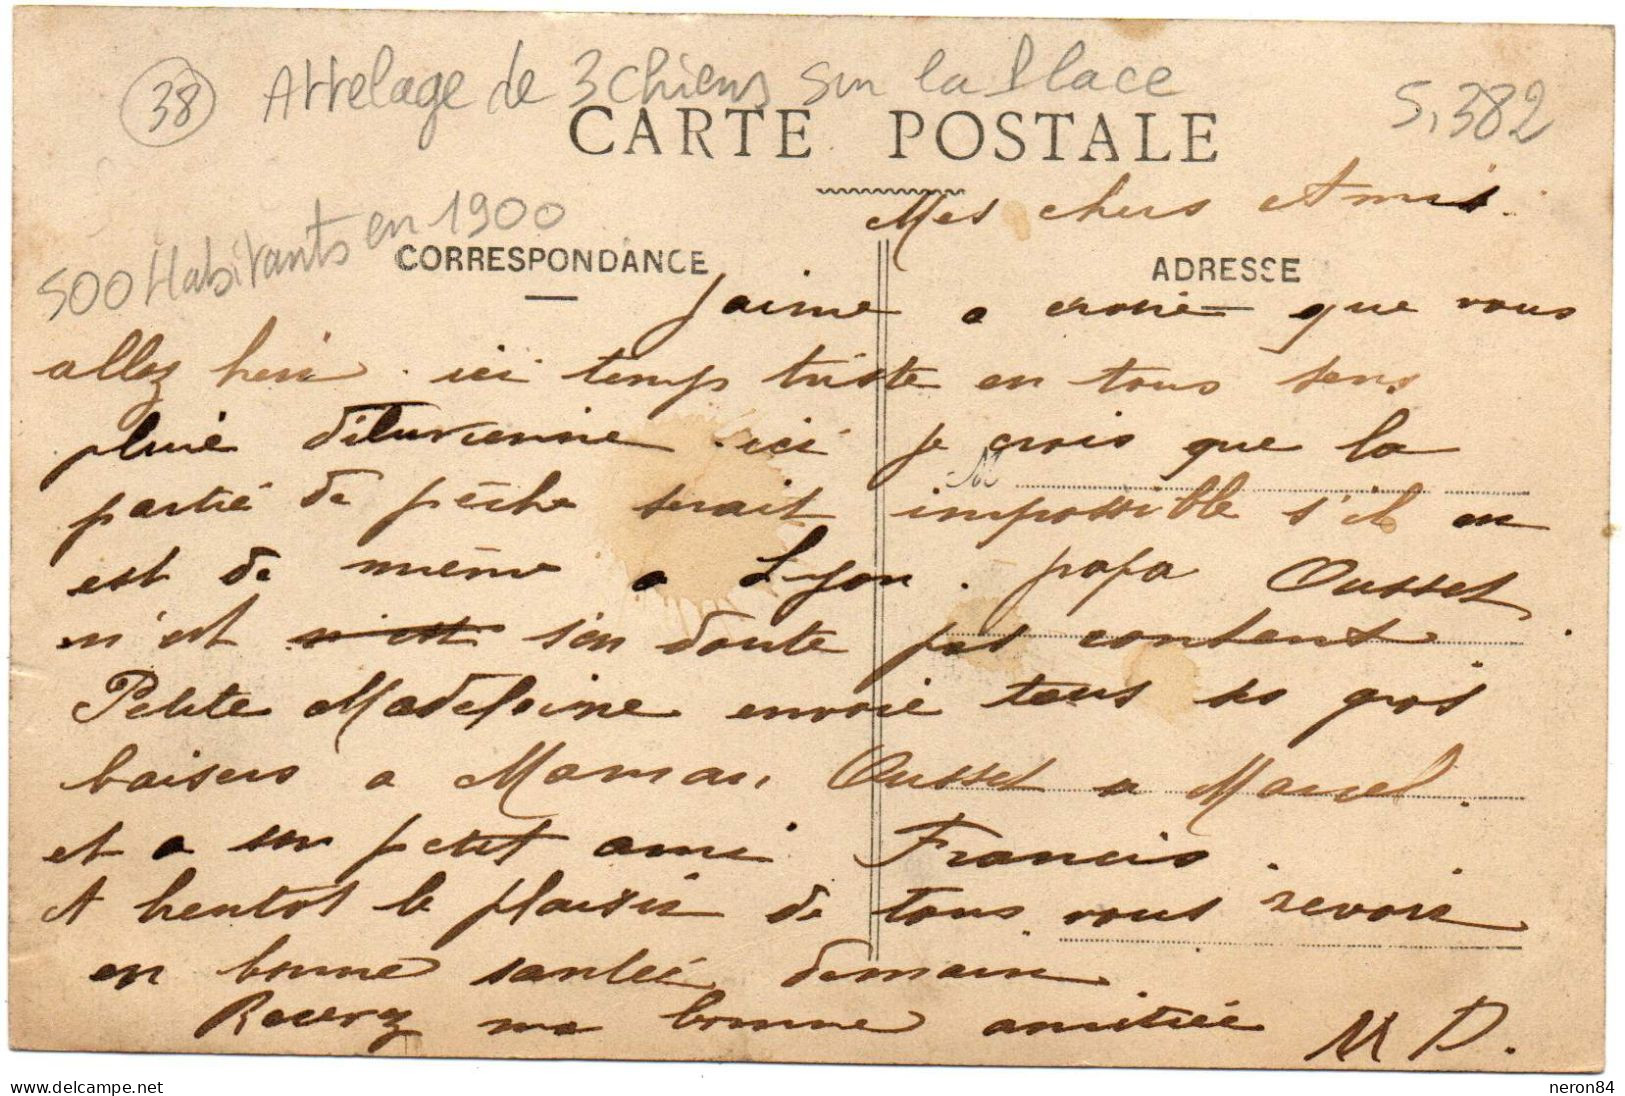 38 Attelage de 3 chiens sur la Place
5,382
CARTE POSTALE
500 Habitants en 1900
Mes chers Amis.
CORRESPONDANCE
ADRESSE
J'aime a croire que vous
allez bien . ici temp triste en tous sens
pluie diluvienne . ici je crois que la
M
partie de pêche serait impossible s'il en
est de même a Lyon . papa Ousset
n'est n'est s'en doute pas content .
Petite Madeleine envoie tous ses gros
baisers a Maman Ousset a Marcel .
et a son petit ami Francis .
A bentot le plaisir de tous vous revoir
en bonne santée demain
Recevez ma bonne amitiée M D .
delcampe.net
neron84